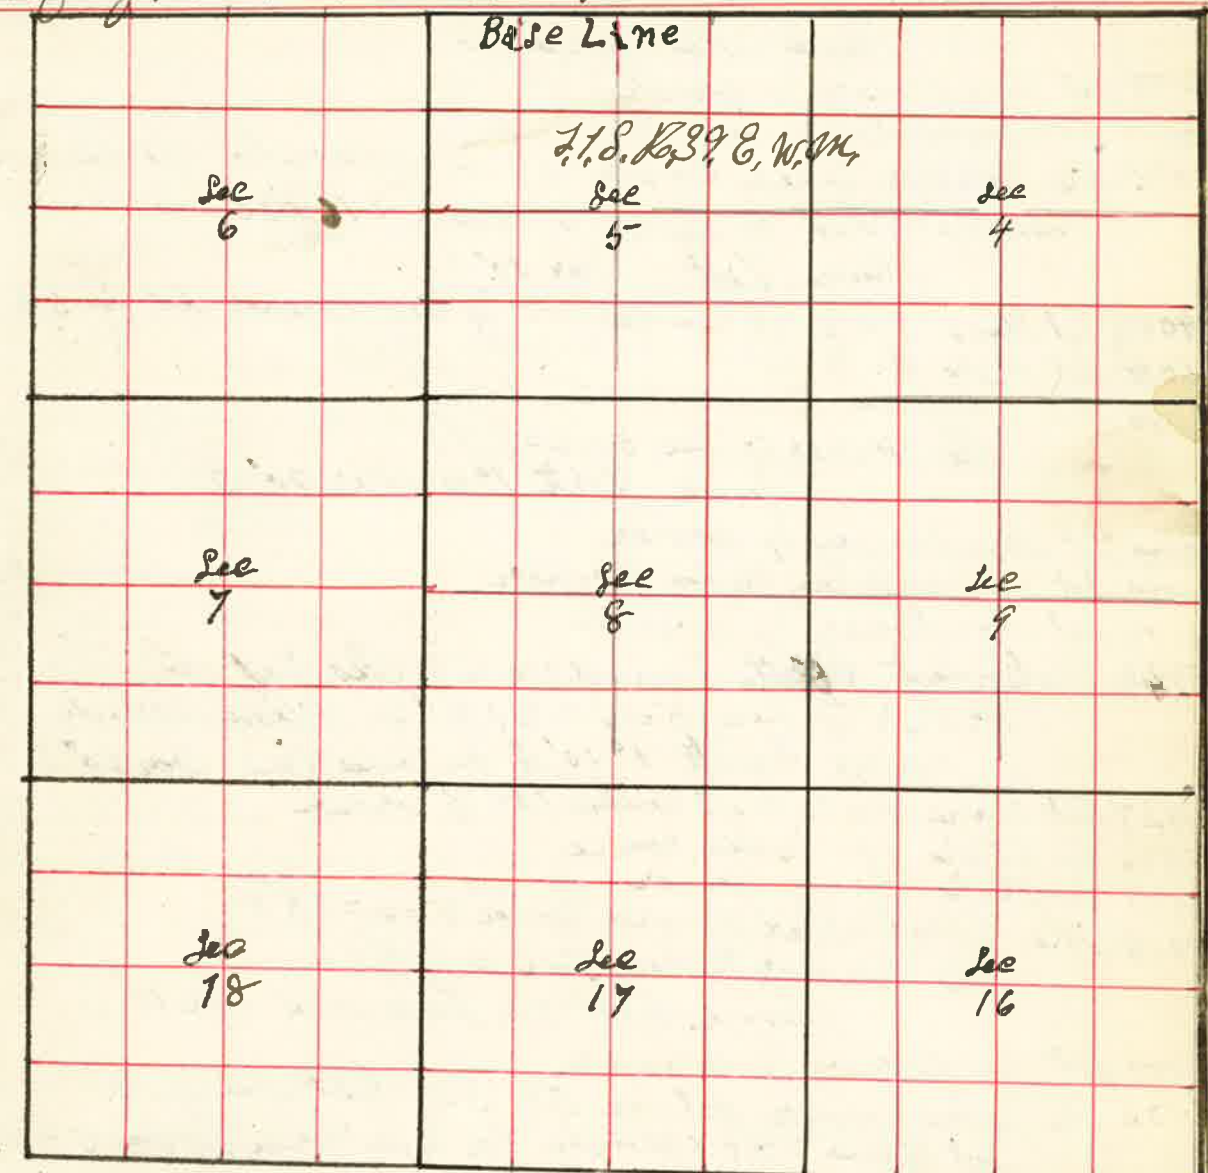 Base Line
T.1.S. R.39. E, W.M,
Sec
6
Sec
5
Sec
4
Sec
7
Sec
8
Sec
9
Sec
18
Sec
17
Sec
16